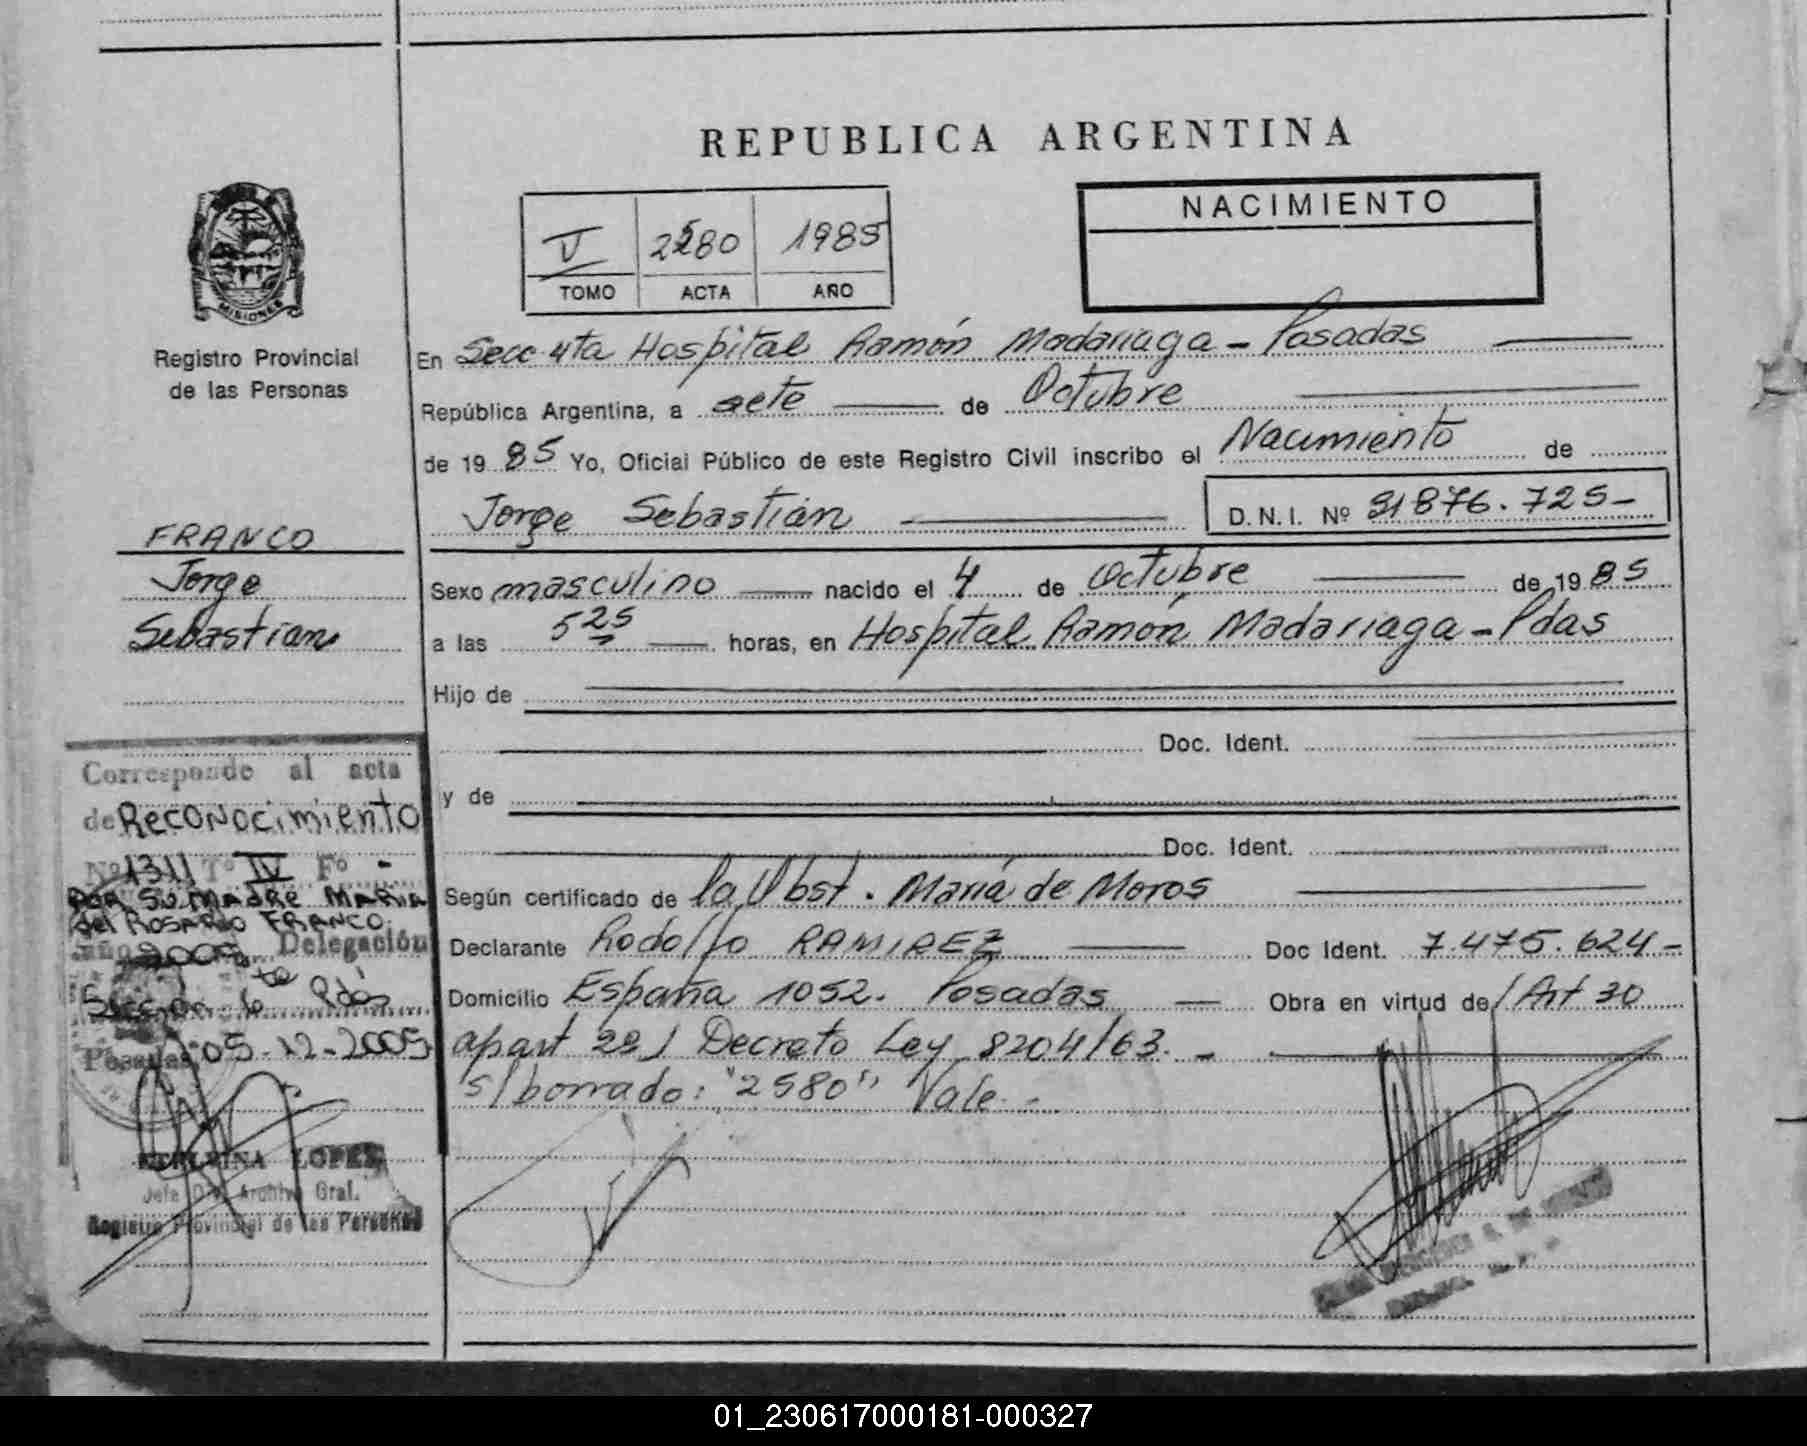 REPUBLICA ARGENTINA
NACIMIENTO
V 2580 1985
TOMO ACTA AÑO
MISIONES
Registro Provincial
de las Personas
En Secc 4ta Hospital Ramón Madariaga - Posadas
República Argentina, a siete de Octubre
de 1985 Yo, Oficial Público de este Registro Civil inscribo el Nacimiento de
Jorge Sebastián D.N.I. Nº 31876.725-
FRANCO
Jorge
Sebastian
Sexo masculino nacido el 4 de Octubre de 1985
a las 5 25 horas, en Hospital Ramón Madariaga - Pdas
Hijo de
Doc. Ident.
y de
Doc. Ident.
Según certificado de la Obst. María de Moros
Declarante Rodolfo RAMIREZ Doc Ident. 7.475.624-
Domicilio España 1052. Posadas Obra en virtud de/ Art 30
apart 2º) Decreto Ley 8204/63. -
s/borrado: "2580" Vale. -
Corresponde al acta
de Reconocimiento
Nº 1311 Tº IV Fº -
POR SU MADRE MARIA
del ROSARIO FRANCO
año 2005 Delegación
Sección 1 te Pdas
Posadas 05-12-2005
LOPEZ
Jefa Div. Archivo Gral.
Registro Provincial de las Personas
01_230617000181-000327